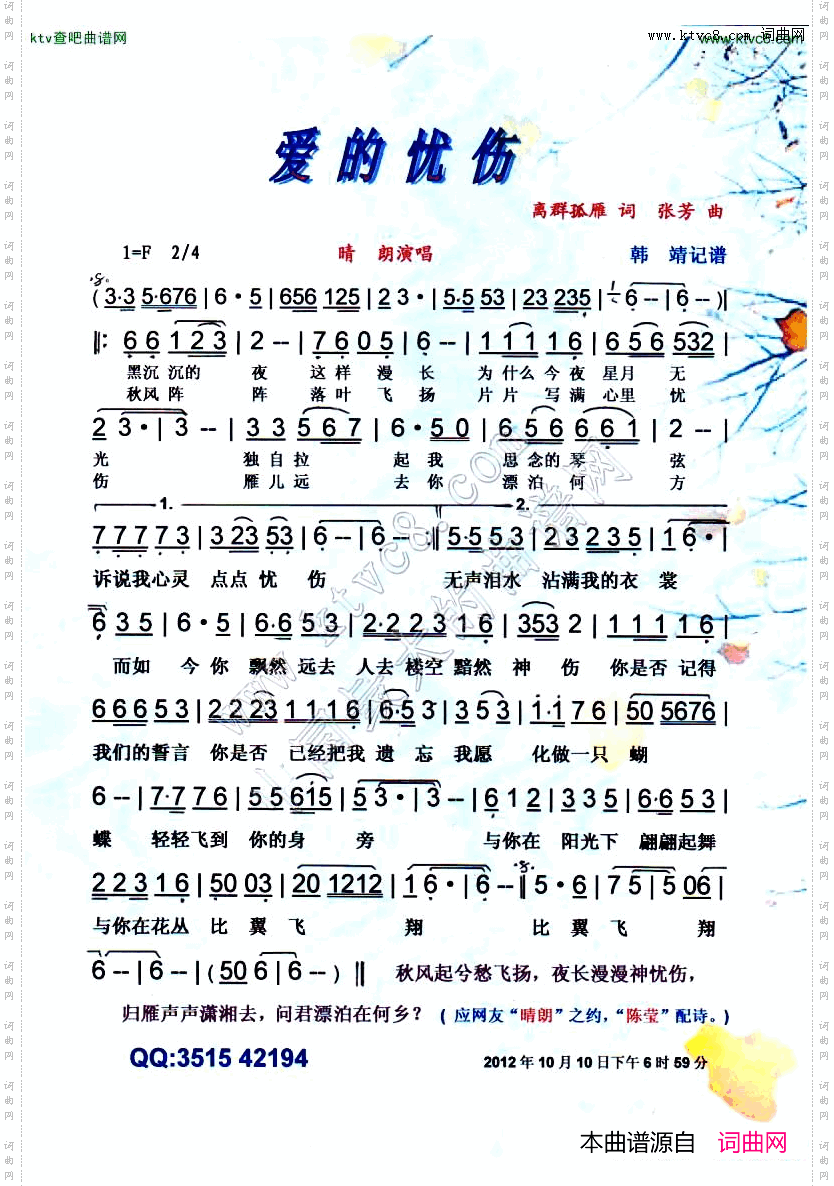 ktv查吧曲谱网
www.ktvc8.com 词曲网
www.ktvc8.com
爱的忧伤
离群孤雁 词 张芳 曲
1=F 2/4 晴 朗演唱 韩 靖记谱
(3·3 5·676 | 6·5 | 656 125 | 2 3· | 5·5 53 | 23 235 | 1 6 -- | 6 -- )||
||: 6 6 1 2 3 | 2 -- | 7 6 0 5 | 6 -- | 1 1 1 1 6 | 6 5 6 532 |
黑沉 沉的 夜 这样 漫 长 为 什么 今夜 星月 无
秋风 阵 阵 落叶 飞 扬 片 片 写满 心里 忧
2 3· | 3 -- | 3 3 5 6 7 | 6·5 0 | 6 5 6 6 6 1 | 2 -- |
光 独 自 拉 起 我 思 念的 琴 弦
伤 雁 儿 远 去 你 漂 泊 何 方
1. 2.
7 7 7 7 3 | 3 23 53 | 6 -- | 6 -- :|| 5·5 5 3 | 2 2 2 3 5 | 1 6· |
诉说我心灵 点点 忧 伤 无声泪水 沾满我的衣 裳
6 3 5 | 6·5 | 6·6 5 3 | 2·2 2 3 1 6 | 353 2 | 1 1 1 1 6 |
而如 今 你 飘然 远去 人去 楼空 黯然 神 伤 你是否 记得
6 6 6 5 3 | 2 2 23 1 1 1 6 | 6·5 3 | 3 5 5 | 1·1 7 6 | 50 5676 |
我们的誓言 你是否 已经把我 遗 忘 我愿 化做一只 蝴
6 -- | 7·7 7 6 | 5 5 615 | 5 3· | 3 -- | 6 1 2 | 3 3 5 | 6·6 5 3 |
蝶 轻轻飞到 你的身 旁 与你在 阳光下 翩翩起舞
2 2 3 1 6 | 50 03 | 20 1212 | 1 6· | 6 -- || 5·6 | 7 5 | 5 06 |
与你在花丛 比 翼 飞 翔 比 翼 飞 翔
6 -- | 6 -- | (50 6 | 6 -- ) || 秋风起兮愁飞扬，夜长漫漫神忧伤，
归雁声声潇湘去，问君漂泊在何乡？ ( 应网友“晴朗”之约，“陈莹”配诗。)
QQ:3515 42194 2012 年 10 月 10 日下午 6 时 59 分
本曲谱源自 词曲网